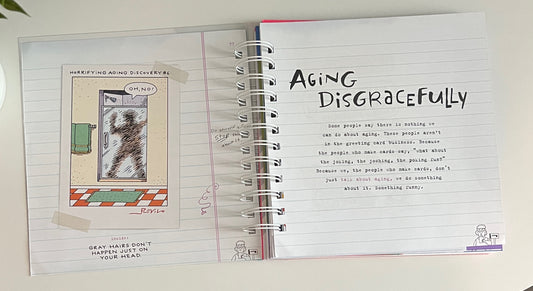 HORRIFYING AGING DISCOVERY #6
OH, NO!
REVILO
GRAY HAIRS DON'T
HAPPEN JUST ON
YOUR HEAD.
AGING
DISGRACEFULLY
Some people say there is nothing we
can do about aging. These people aren't
in the greeting card business. Because
the people who make cards say, "What about
the joking, the joshing, the poking fun?"
Because we, the people who make cards, don't
just talk about aging, we do something
about it. Something funny.